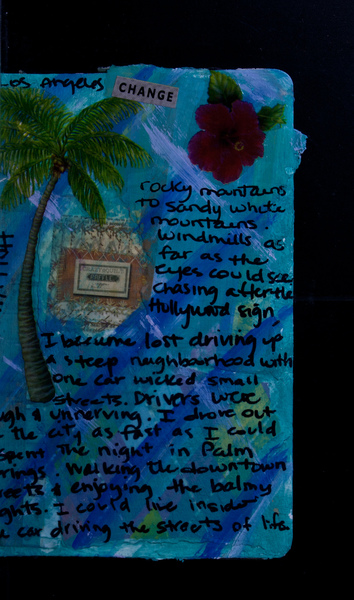 Los Angeles
CHANGE
rocky mountains
to sandy white
mountains.
Windmills as
far as the
eyes could see,
chasing after the
Hollywood sign,
I became lost driving up
a steep neighbourhood with
one car wicked small
streets. Drivers were
ugh & unnerving. I drove out
the city as fast as I could
spent the night in Palm
rings. Walking the downtown
reets & enjoying the balmy
ghts. I could live inside
car driving the streets of life.